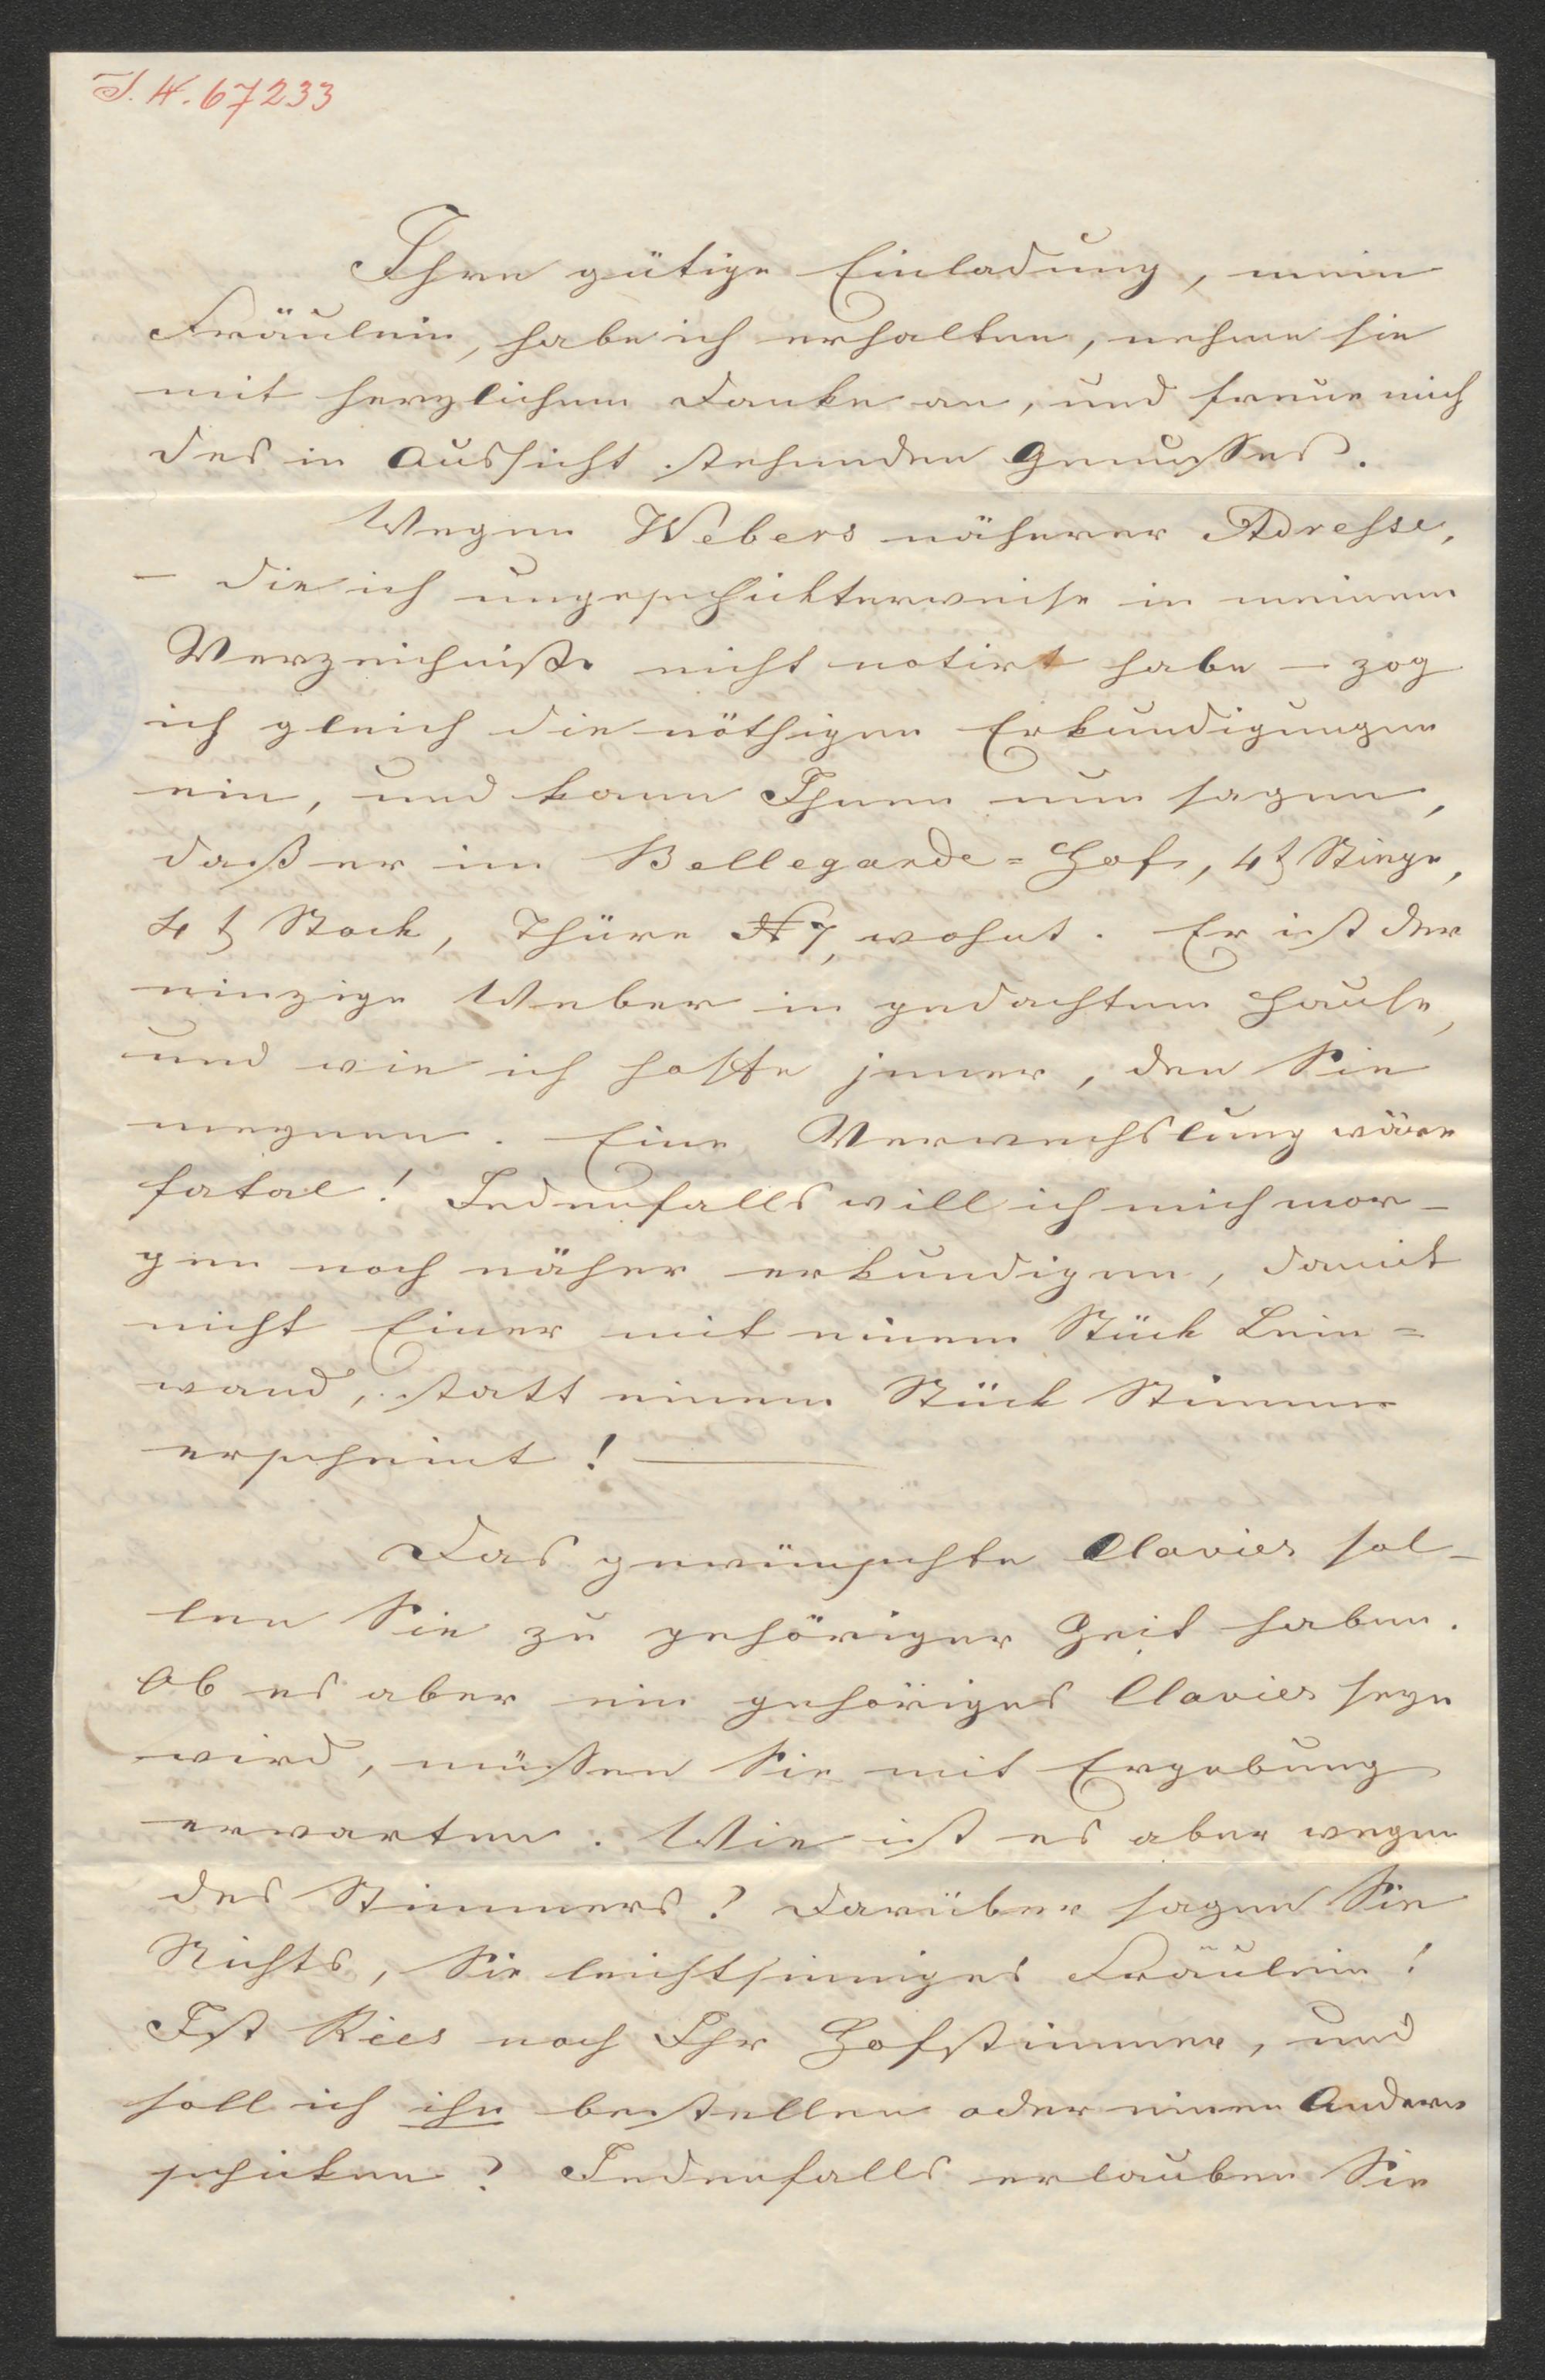 I. N. 67233
Ihre gütige Einladung, mein
Fräulein, habe ich erhalten, nehme sie
mit herzlichem Danke an, und freue mich
des in Aussicht stehenden Genusses.
Wegen Webers näherer Adresse,
– die ich ungeschickterweise in meinem
Verzeichniße nicht notirt habe – zog
ich gleich die nöthigen Erkundigungen
ein, und kann Ihnen nun sagen,
daß er im Bellegarde=Hof, 4t Stiege,
4t Stock, Thüre N 7, wohnt. Er ist der
einzige Weber in gedachtem Hause,
und wie ich hoffe jener, den Sie
meynen. Eine Verwechslung wäre
fatal! Jedenfalls will ich mich mor–
gen noch näher erkundigen, damit
nicht Einer mit einem Stück Lein=
wand, statt einem Stück Stimme
erscheint! —
Das gewünschte Clavier sol–
len Sie zu gehöriger Zeit haben.
Ob es aber ein gehöriges Clavier seyn
wird, müssen Sie mit Ergebung
erwarten. Wie ist es aber wegen
des Stimmers? Darüber sagen Sie
Nichts, Sie leichtsinniges Fräulein!
Ist Ries noch Ihr Hofstimmer, und
soll ich ihn bestellen oder einen Andern
schicken? Jedenfalls erlauben Sie